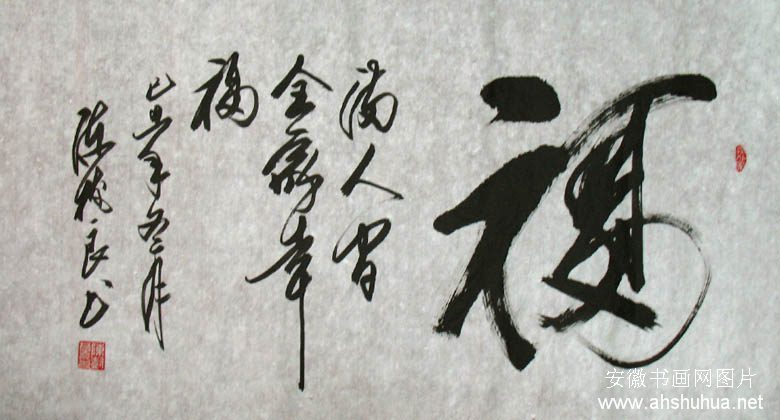 福
满人间
全家幸
福
己丑年冬月
陈
良书
安徽书画网图片
www.ahshuhua.net